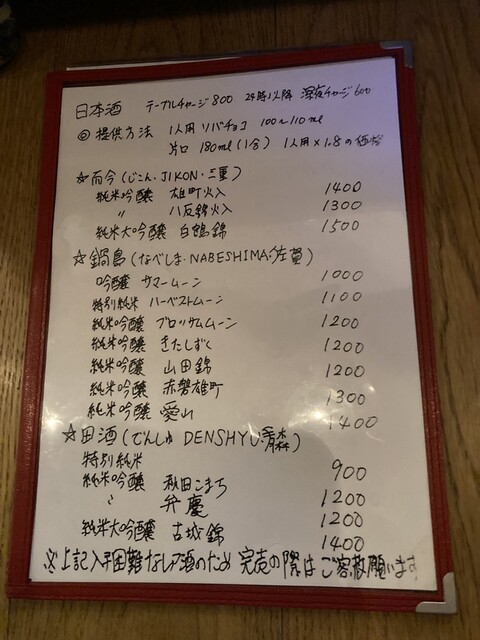 日本酒 テーブルチャージ800 24時以降 深夜チャージ600
◎提供方法 1人用 ソバチョコ 100〜110ml
片口 180ml(1合) 1人用×1.8の価格
☆而今(じこん・JIKON・三重)
純米吟醸 雄町火入 1400
〃 八反錦火入 1300
純米大吟醸 白鶴錦 1500
☆鍋島(なべしま・NABESHIMA・佐賀)
吟醸 サマームーン 1000
特別純米 ハーベストムーン 1100
純米吟醸 ブロッサムムーン 1200
純米吟醸 きたしずく 1200
純米吟醸 山田錦 1200
純米吟醸 赤磐雄町 1300
純米吟醸 愛山 1400
☆田酒(でんしゅ DENSHYU・青森)
特別純米 900
純米吟醸 秋田こまち 1200
〃 弁慶 1200
純米大吟醸 古城錦 1400
※上記入手困難なお酒のため 完売の際はご容赦願います